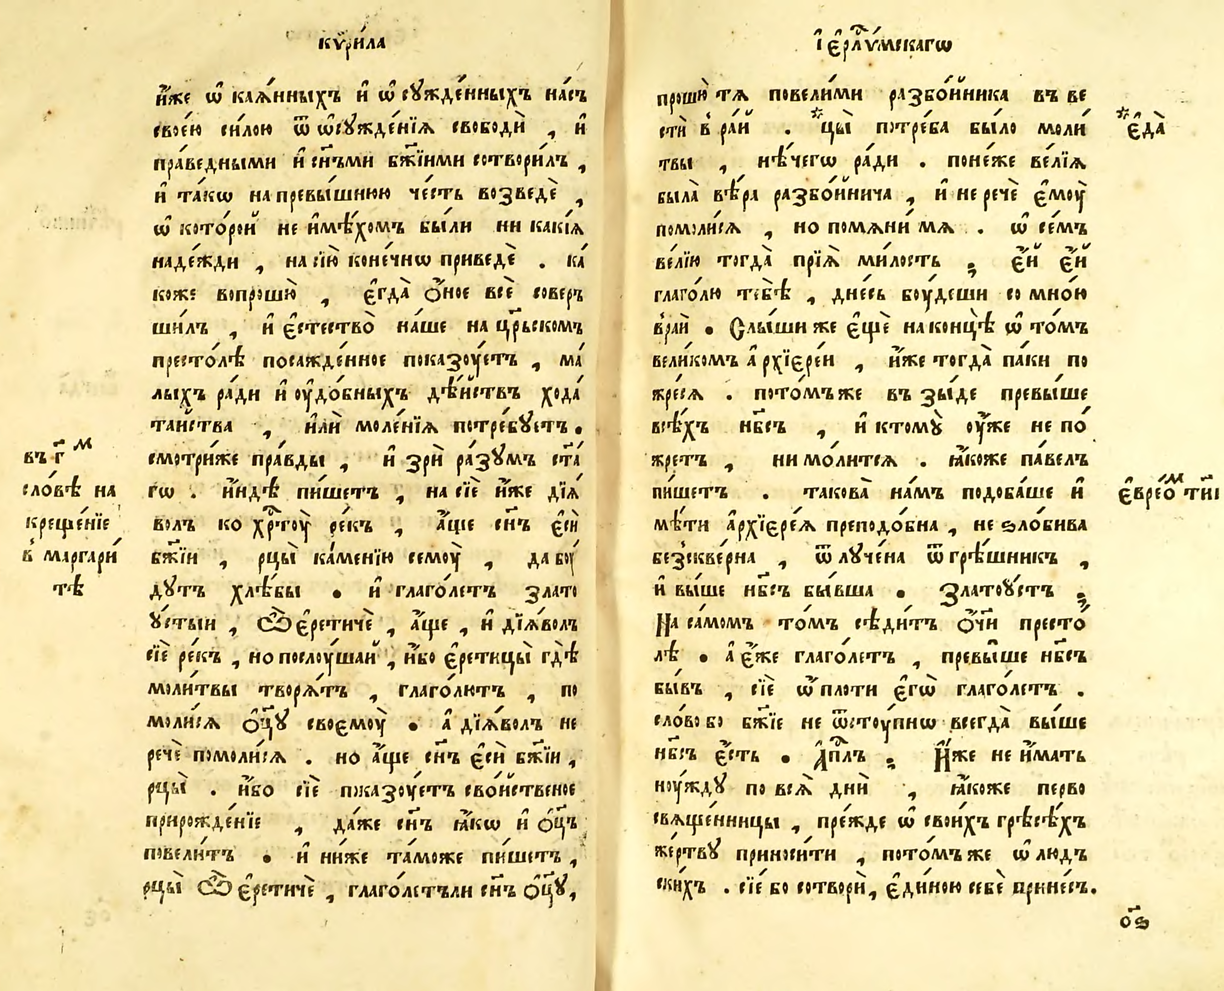 кѷри́ла
и҆́же ѿ кая́нныхъ и҆ ѿ сꙋжде́нныхъ на́съ
свое́ю си́лою ѿ ѡ҆сꙋжде́нїѧ свободѝ , и҆
пра́ведными и҆ сн҃ъми бж҃їими сотвори́лъ ,
и҆ та́кѡ на превы́шнюю че́сть возведѐ ,
ѿ кото́рой не и҆мѣ́хомъ бы́ли ни какїѧ
наде́жди , на сїю̀ коне́чнѡ приведѐ . ка́
коже вопрошю̀ , є҆гда̀ ѻ҆́ное всѐ соверъ
ши́лъ , и҆ є҆стество̀ на́ше на цр҃ьскомъ
престо́лѣ посажде́нное показꙋ́етъ , ма́
лыхъ ра́ди и҆ оу҆до́бныхъ дѣ́йствъ хода́
тайства , и҆лѝ моле́нїѧ потре́бꙋетъ .
смотри́же пра́вды , и҆ зрѝ ра́зꙋмъ ст҃а́
гѡ . и҆́ндѣ пи́шетъ , на сїѐ и҆́же дїѧ́
волъ ко хр҃тоу̀ ре́къ , а҆́ще сн҃ъ є҆сѝ
бж҃їи , рцы̀ ка́менїю семоу̀ , да боу́
дꙋтъ хлѣ́бы . и҆ глаго́летъ злато
ꙋ́стыи , ѽ є҆ретичѐ , а҆́ще , и҆ дїѧ́волъ
сїѐ ре́къ , но послоу́шай , и҆́бо є҆ретицы̀ гдѣ̀
моли́твы творѧ́тъ , глаго́лютъ , по
моли́сѧ ѻ҆ц҃ꙋ̀ своемоу̀ . а҆ дїѧ́волъ не
речѐ помоли́сѧ . но а҆́ще сн҃ъ є҆сѝ бж҃їи ,
рцы̀ . и҆́бо сїѐ показꙋ́етъ сво́йственое
прирожде́нїе , да́же сн҃ъ ꙗ҆́кѡ и҆ ѻ҆ц҃ъ
повели́тъ . и҆ ни́же та́може пи́шетъ ,
рцы̀ ѽ є҆ретичѐ , глаго́летъли сн҃ъ ѻ҆ц҃ꙋ̀ ,
въ г҃ ⷨ
сло́вѣ на
креще́нїе
в̾ маргари́
тѣ
і҆ерⷭ҇лꙋ́мскагѡ
прошю̀ тѧ̀ повели́ми разбо́йника въ ве
стѝ в̾ ра́й . *цы̀ потре́ба бы́ло моли́
твы , нѣ́чегѡ ра́ди . поне́же ве́лїѧ
была̀ вѣ́ра разбо́йнича , и҆ не речѐ є҆моу̀
помоли́сѧ , но помѧни́ мѧ . ѿ се́мъ
ве́лїю тогда̀ прїѧ̀ ми́лость ; є҆́й є҆́й
глаго́лю тебѣ̀ , дне́сь бо́удеши со мно́ю
в̾рай . Слы́ши же є҆щѐ на концѣ̀ ѿ то́мъ
вели́комъ а҆рхїере́и , и҆́же тогда̀ па́ки по
жре́сѧ . пото́мъже въ зы́де превы́ше
всѣ́хъ нб҃съ , и҆ ктомꙋ̀ оу҆́же не по́
жретъ , ни мо́литсѧ . ꙗ҆́коже па́велъ
пи́шетъ . такова̀ на́мъ подоба́ше и҆
мѣ́ти а҆рхїере́ѧ преподо́бна , не ѕло́бива
без̾скве́рна , ѿ лꙋче́на ѿ грѣ́шникъ ,
и҆ вы́ше нб҃съ бы́вша . Златоꙋ́стъ ;
На са́момъ то́мъ сѣди́тъ ѻ҆́чи престо́
лѣ . а҆ є҆́же глаго́летъ , превы́ше нб҃съ
бы́въ , сїѐ ѿ пло́ти є҆гѡ̀ глаго́летъ .
сло́во бо бж҃їе не ѿстоу́пнѡ всегда̀ вы́ше
нб҃съ є҆́сть . А҆пⷭ҇лъ ; И҆́же не и҆́мать
ноу́ждꙋ по всѧ̀ днѝ , ꙗ҆́коже перво
свѧще́нницы , пре́жде ѿ свои́хъ грѣсѣ́хъ
же́ртвꙋ приноси́ти , пото́мъже ѿ лю́дъ
скихъ . сїе́ бо сотворѝ , є҆ди́ною себѐ прине́съ .
*є҆да̀
є҆вре́ѡⷨ ті҃и
ѻ҃ѕ